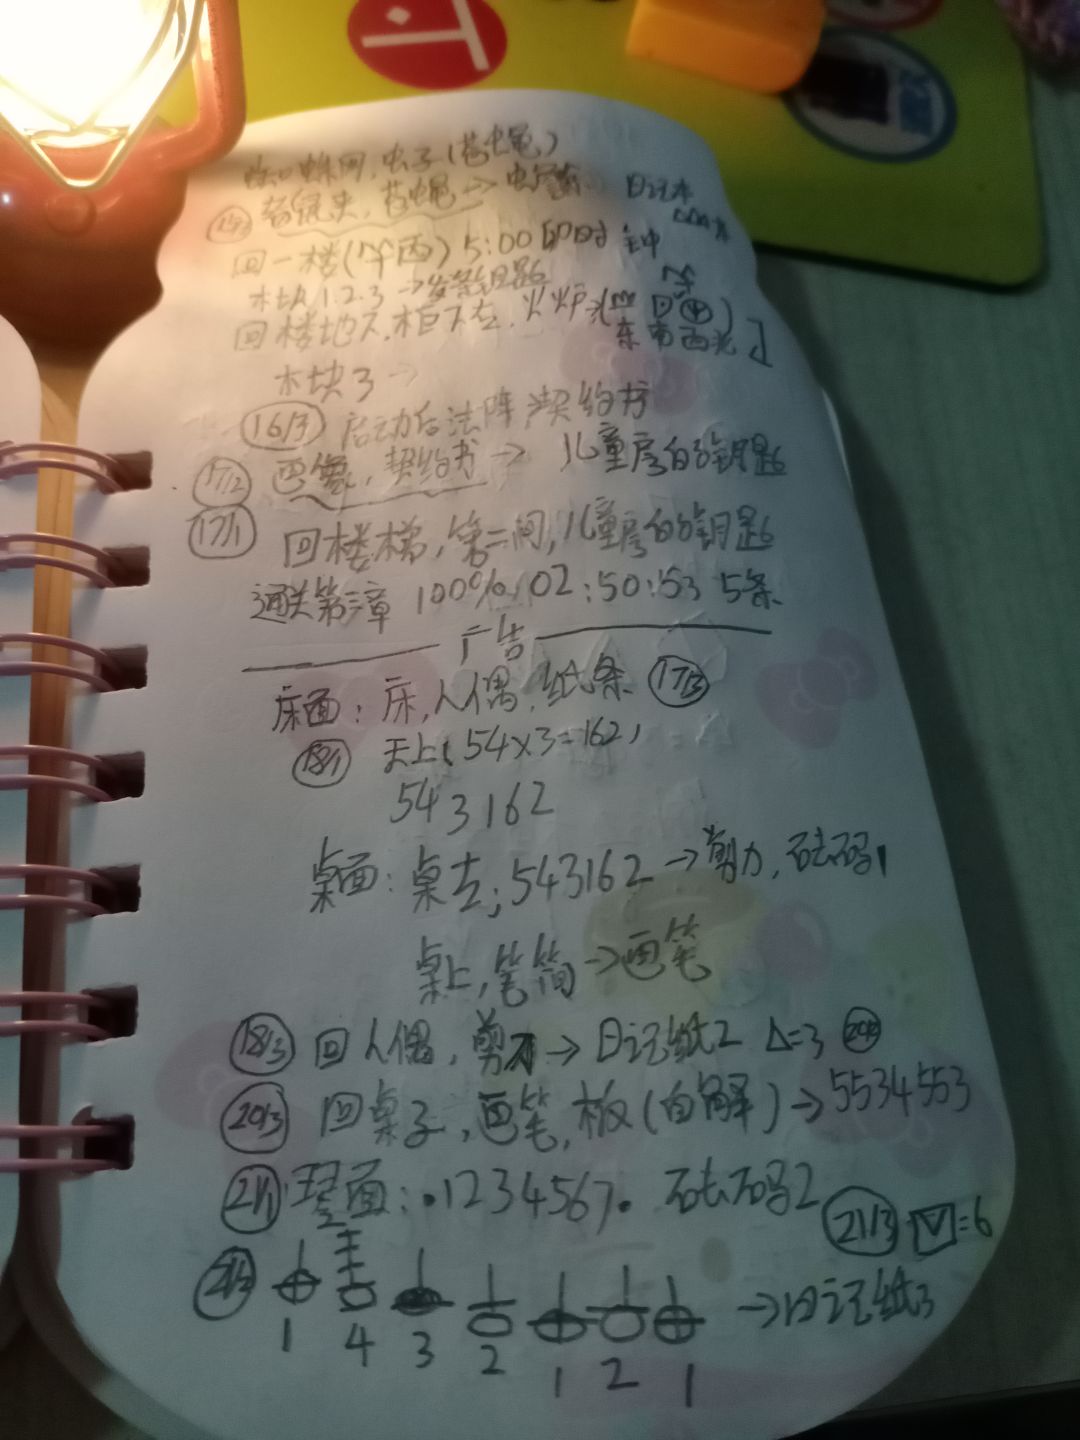 蜘蛛网,虫子(苍蝇)
苍蝇 日记本
回一楼(怀西)5:00即时钟
木块1.2.3→
回楼地下,柜下左,火炉 回
东南西北]
木块3→
(16/3) 启动后法阵 契约书
(17/2) 契约书→儿童房的钥匙
(17/1) 回楼梯,第二间,儿童房的钥匙
通关第三章 100% 02:50:53 5条
广告
床面:床,人偶,纸条 (17/3)
(18/1) 天上(54×3=162,
543162
桌面:桌左;543162→剪刀,砝码1
桌上,笔筒→画笔
(18/3) 回人偶,剪刀→日记纸2 △=3
(20/3) 回桌子,画笔,板(自解)→5534553
(21/1) 竖面:·1234567· 砝码2
(21/3) ▽=6
→日记纸3
1 4 3 2 1 2 1